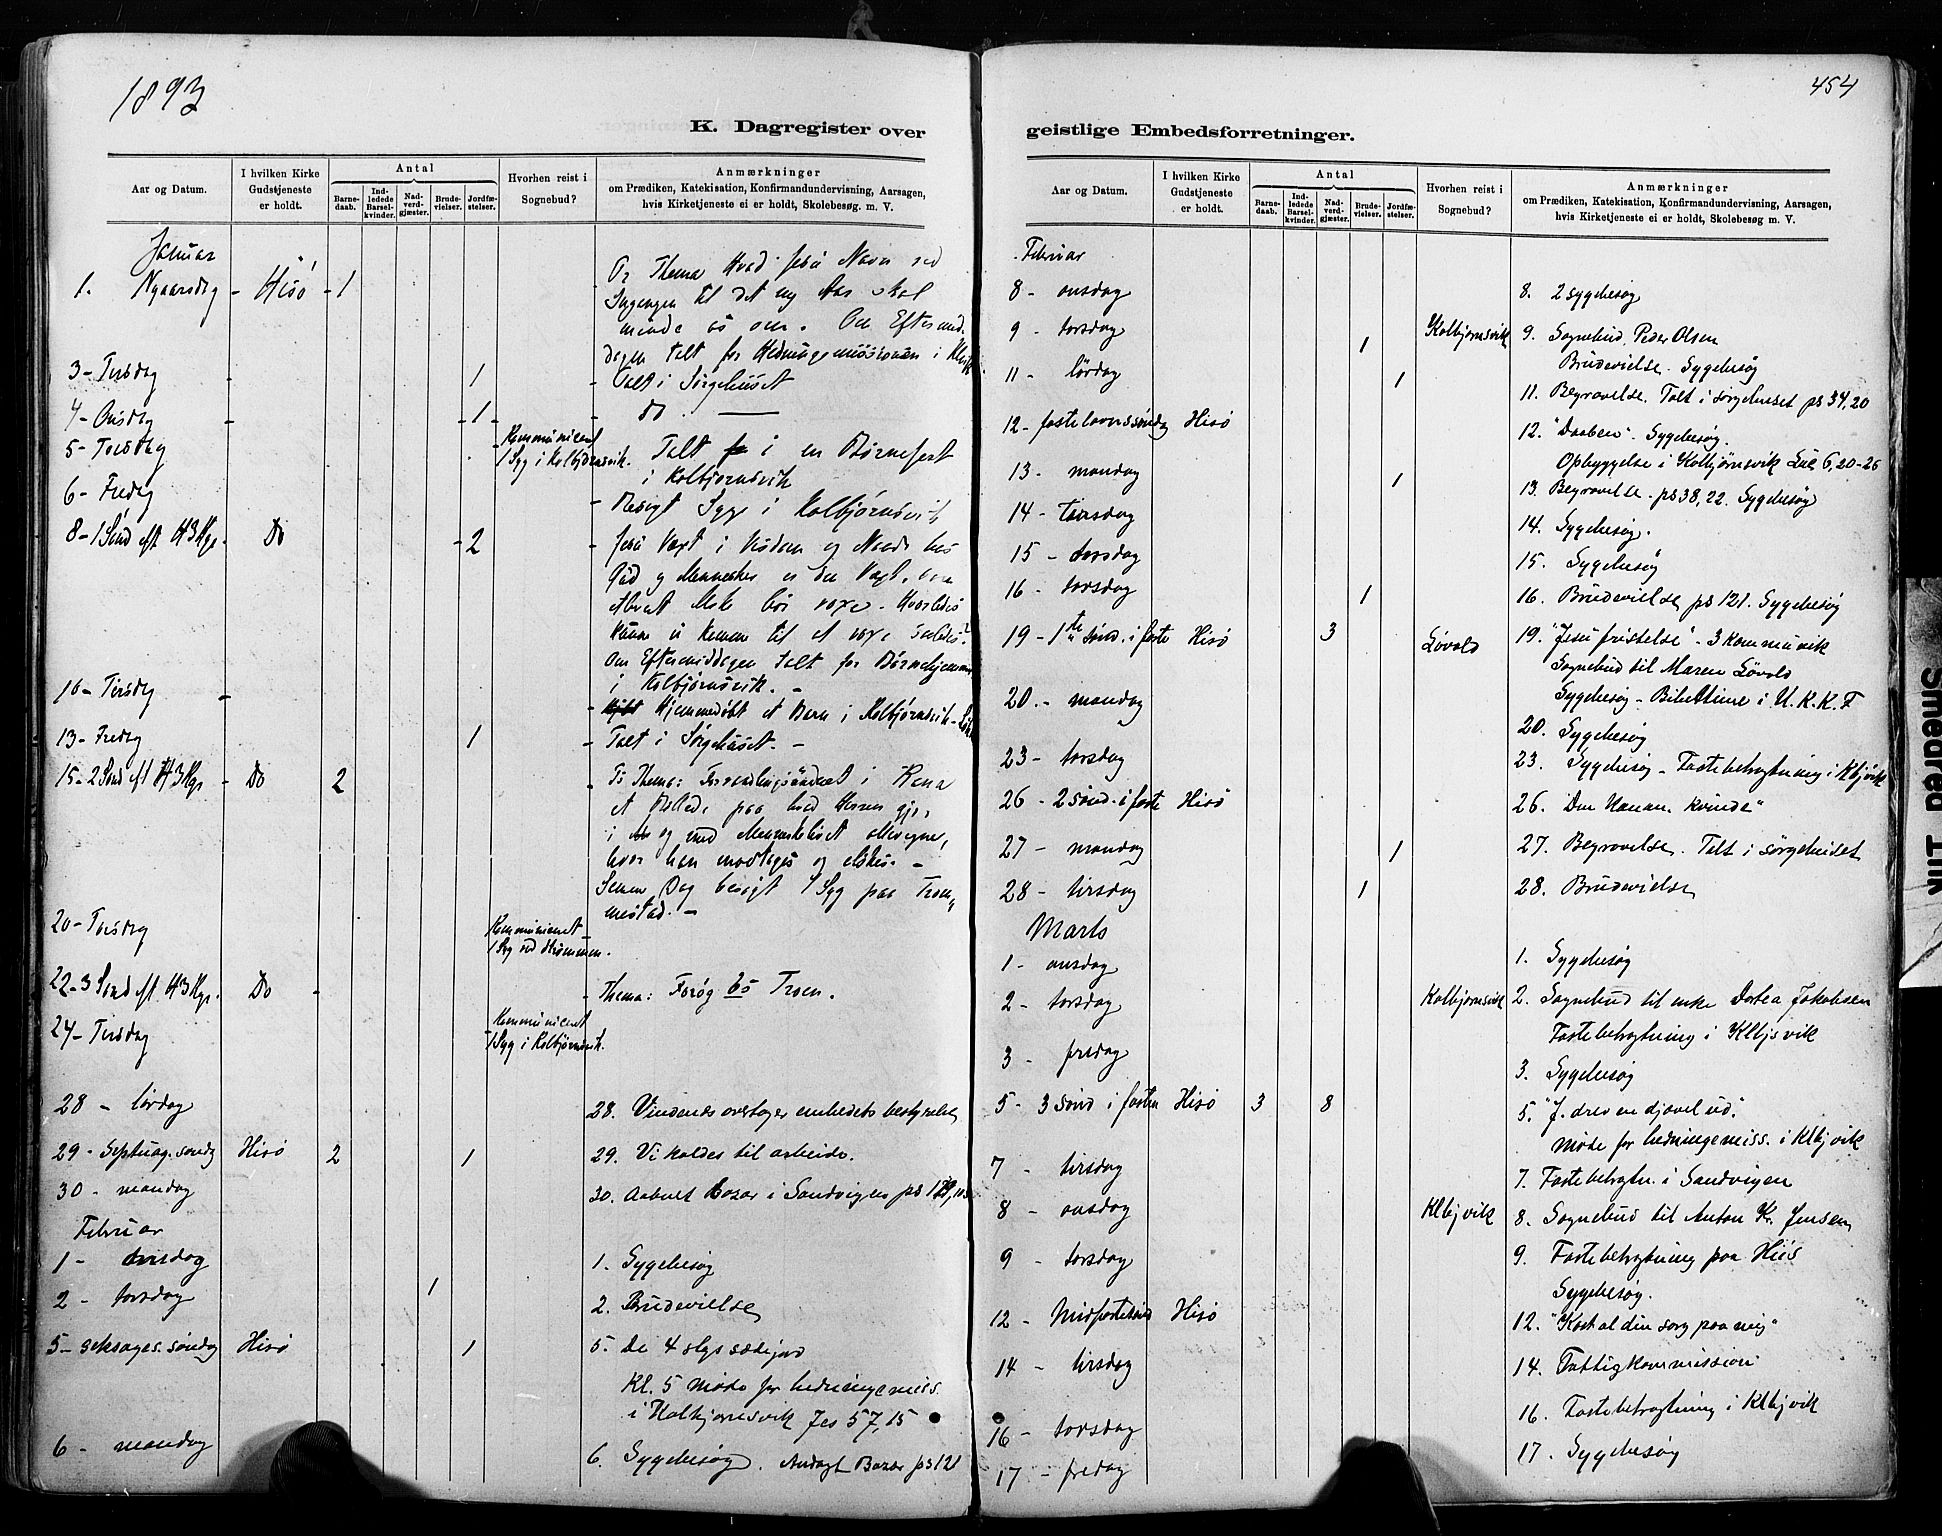 1893
K. Dagregister over
Aar og Datum.
I hvilken Kirke Gudstjeneste er holdt.
Antal
Barnedaab.
Indledede Barselkvinder.
Nadverdgjæster.
Brudevielser.
Jordfæstelser.
Hvorhen reist i Sognebud?
Anmærkninger
om Prædiken, Katekisation, Konfirmandundervisning, Aarsagen,
hvis Kirketjeneste ei er holdt, Skolebesøg m. V.
Januar
1. Nyaarsdag - Hisö - 1
Thema Hvad Jesu Navn ved
Indgangen til det ny Aar skal
minde os om. Om Eftermid-
dagen talt for Hedningemissionen i
3 - Tirsdag - 1 - Talt i Sørgehuset
4 - Onsdag - 1 - do
5 - Torsdag
Kommuniceret
1 Syg i Kolbjörnsvik.
Talt i en Børnefest
i Kolbjørnsvik
6 - Fredag - Besøgt Syge i Kolbjørnsvik
8 - 1 Sönd eft H3Kgr. Do - 2 - Jesu Vext i Visdom og Naade hos
Gud og Mennesker er den Vext, hvori
bör voxe. Hvorledes
kunne vi komme til at voxe saaledes?
Om Eftermiddagen talt for Børnehjemmet
i Kolbjørnsvik. -
10 - Tirsdag - Hjemmedøbt et Barn i Kolbjørnsvik
13 - Fredag 1 - Talt i Sørgehuset. -
15 - 2 Sönd eft H3Kgr - Do 2
Thema: Forvandlingsunderet i Kana
i og med
hvor han modtages og elskes. -
Samme Dag besøgt 1 Syg paa Trom-
mestad. -
20 - Torsdag
Kommuniceret
1 Syg ved Strømmen.
22 - 3 Sönd eft H3Kgr. Do - - Thema: Forøg os Troen.
24 - Tirsdag
Kommuniceret
1 Syg i Kolbjørnsvik.
28 - lördag 28. Vindenes overtager embedets bestyrelse
29 - Septuag. søndag Hisö 2 1 29. Vi kaldes til arbeide.
30 - mandag 30. Aabnet Bazar i Sandvigen ps 119, 105
Februar
1 - onsdag 1. Sygebesøg
2 - torsdag 1 2. Brudevielse
5 - seksages. søndag Hisö 1 5. De 4 slags sædejord
Kl. 5 møde for hedningemiss.
i Kolbjørnsvik Jes 57, 15
6 - mandag 6. Sygebesøg. Andagt Bazar ps 121
454
geistlige Embedsforretninger.
Aar og Datum.
I hvilken Kirke Gudstjeneste er holdt.
Antal
Barnedaab.
Indledede Barselkvinder.
Nadverdgjæster.
Brudevielser.
Jordfæstelser.
Hvorhen reist i Sognebud?
Anmærkninger
om Prædiken, Katekisation, Konfirmandundervisning, Aarsagen,
hvis Kirketjeneste ei er holdt, Skolebesøg m. V.
Februar
8 - onsdag 8. 2 sygebesøg
9 - torsdag 1 Kolbjørnsvik 9. Sognebud. Peder Olsen
Brudevielse. Sygebesøg
11 - lördag 1 11. Begravelse. Talt i sørgehuset ps 34, 20
12 - fastelavnssöndag Hisö 12. "Daaben". Sygebesøg.
Opbyggelse i Kolbjørnsvik Luc 6, 20-26
13 - mandag 1 13. Begravelse. ps 38, 22. Sygebesøg
14 - tirsdag 14. Sygebesøg.
15 - torsdag 15. Sygebesøg
16 - torsdag 1 16. Brudevielse ps 121. Sygebesøg
19 - 1te sønd. i faste Hisö 3 Løvold 19. "Jesu fristelse" - 3 kommunik
Sognebud til Maren Løvold
Sygebesøg - Bibeltime i U.K.K.F
20. - mandag 20. Sygebesøg
23 - torsdag 23. Sygebesøg - Fastebetragtning i Klbjvik
26 - 2 sønd. i faste Hisö 26. "Den Kanan. kvinde"
27 - mandag 1 27. Begravelse. Talt i sørgehuset
28 - tirsdag 1 28. Brudevielse
Marts
1 - onsdag 1. Sygebesøg
2 - torsdag Kolbjørnsvik 2. Sognebud til enke Dortea Jakobsen
Fastebetragtning i Klbjsvik
3 - fredag 3. Sygebesøg
5 - 3 sønd i fasten Hisö 3 8 5. "J. drev en djævel ud."
Møde for hedningemiss. i Klbjvik
7 - tirsdag 7. Fastebetragtn. i Sandvigen
8 - onsdag Klbjvik 8. Sognebud til Anton Kr. Jensen
9 - torsdag 9. Fastebetragtning paa His
Sygebesøg.
12 - Midfastesönd Hisö 12. "Kast al din sorg paa mig"
14 - tirsdag 14. Fattigkommission
16 - torsdag 16. Fastebetragtning i Klbjvik
17 - fredag 17. Sygebesøg
Smedred JIK